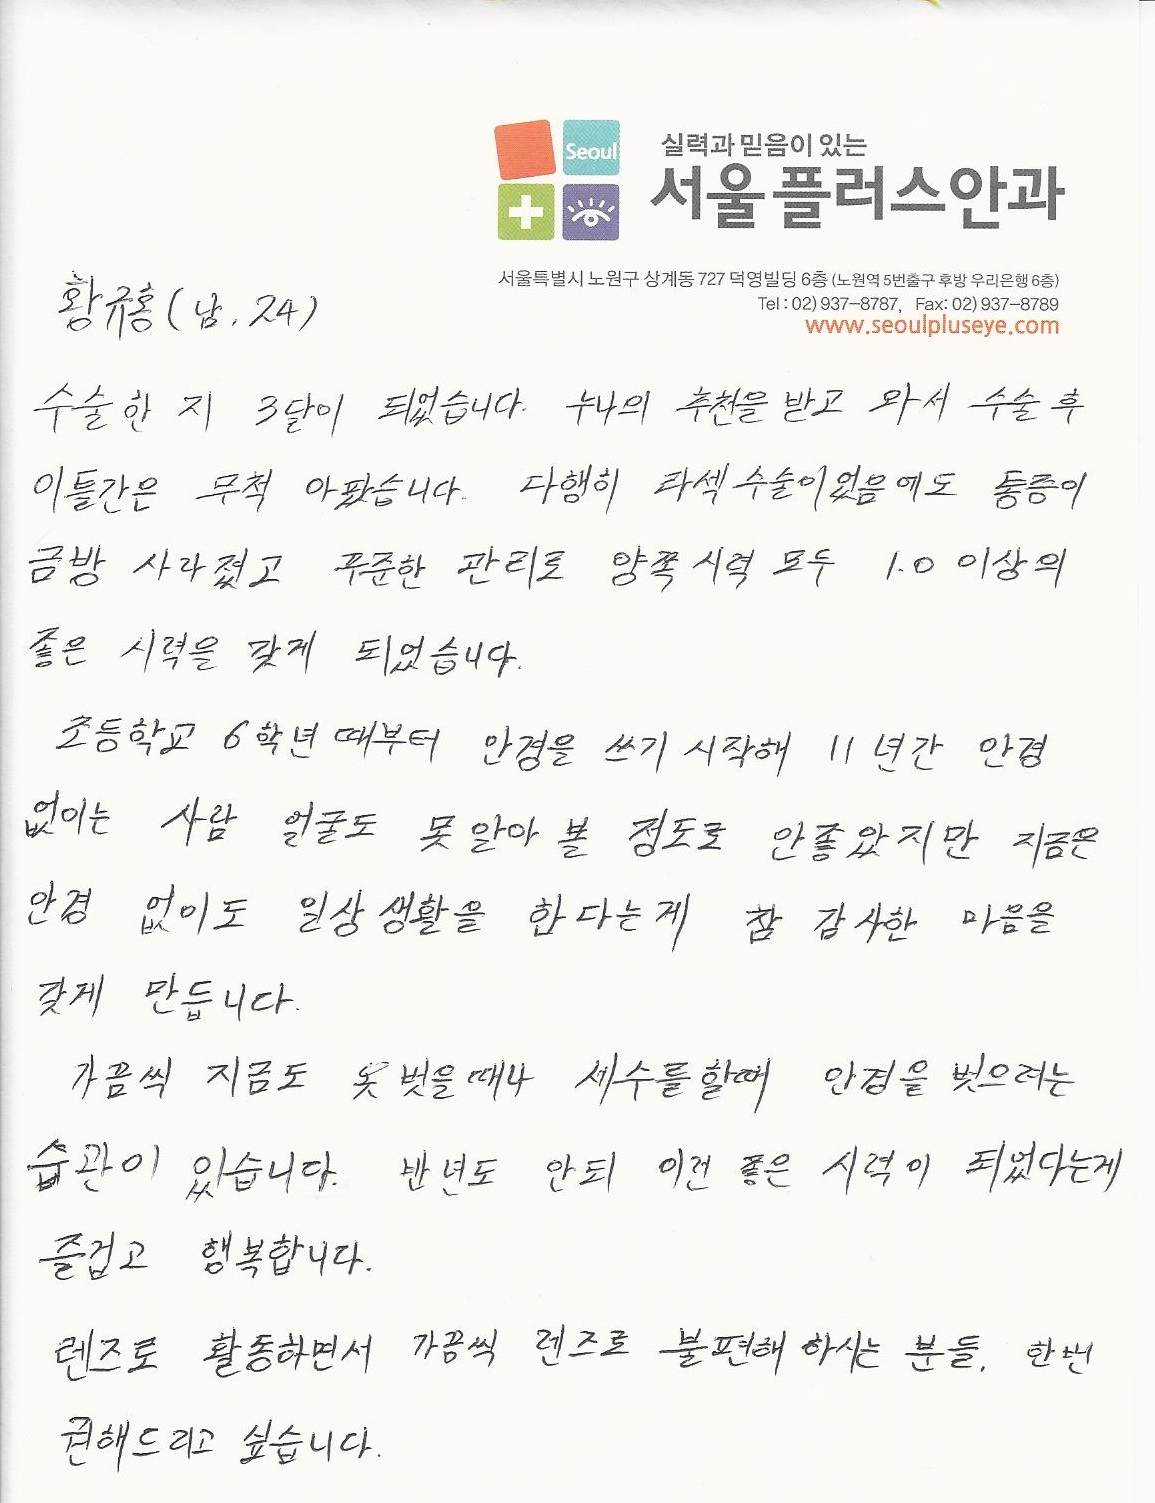 Seoul
실력과 믿음이 있는
서울플러스안과
서울특별시 노원구 상계동 727 덕영빌딩 6층 (노원역 5번출구 후방 우리은행 6층)
Tel : 02) 937-8787, Fax: 02) 937-8789
www.seoulpluseye.com
황규홍 (남, 24)
수술한 지 3달이 되었습니다. 누나의 추천을 받고 와서 수술 후
이틀간은 무척 아팠습니다. 다행히 라섹수술이었음에도 통증이
금방 사라졌고 꾸준한 관리로 양쪽시력 모두 1.0 이상의
좋은 시력을 갖게 되었습니다.
초등학교 6학년 때부터 안경을 쓰기 시작해 11년간 안경
없이는 사람 얼굴도 못 알아 볼 정도로 안좋았지만 지금은
안경 없이도 일상생활을 한다는게 참 감사한 마음을
갖게 만듭니다.
가끔씩 지금도 옷 벗을때나 세수를할때 안경을 벗으려는
습관이 있습니다. 반년도 안되 이런 좋은 시력이 되었다는게
즐겁고 행복합니다.
렌즈로 활동하면서 가끔씩 렌즈로 불편해 하시는 분들, 한번
권해드리고 싶습니다.